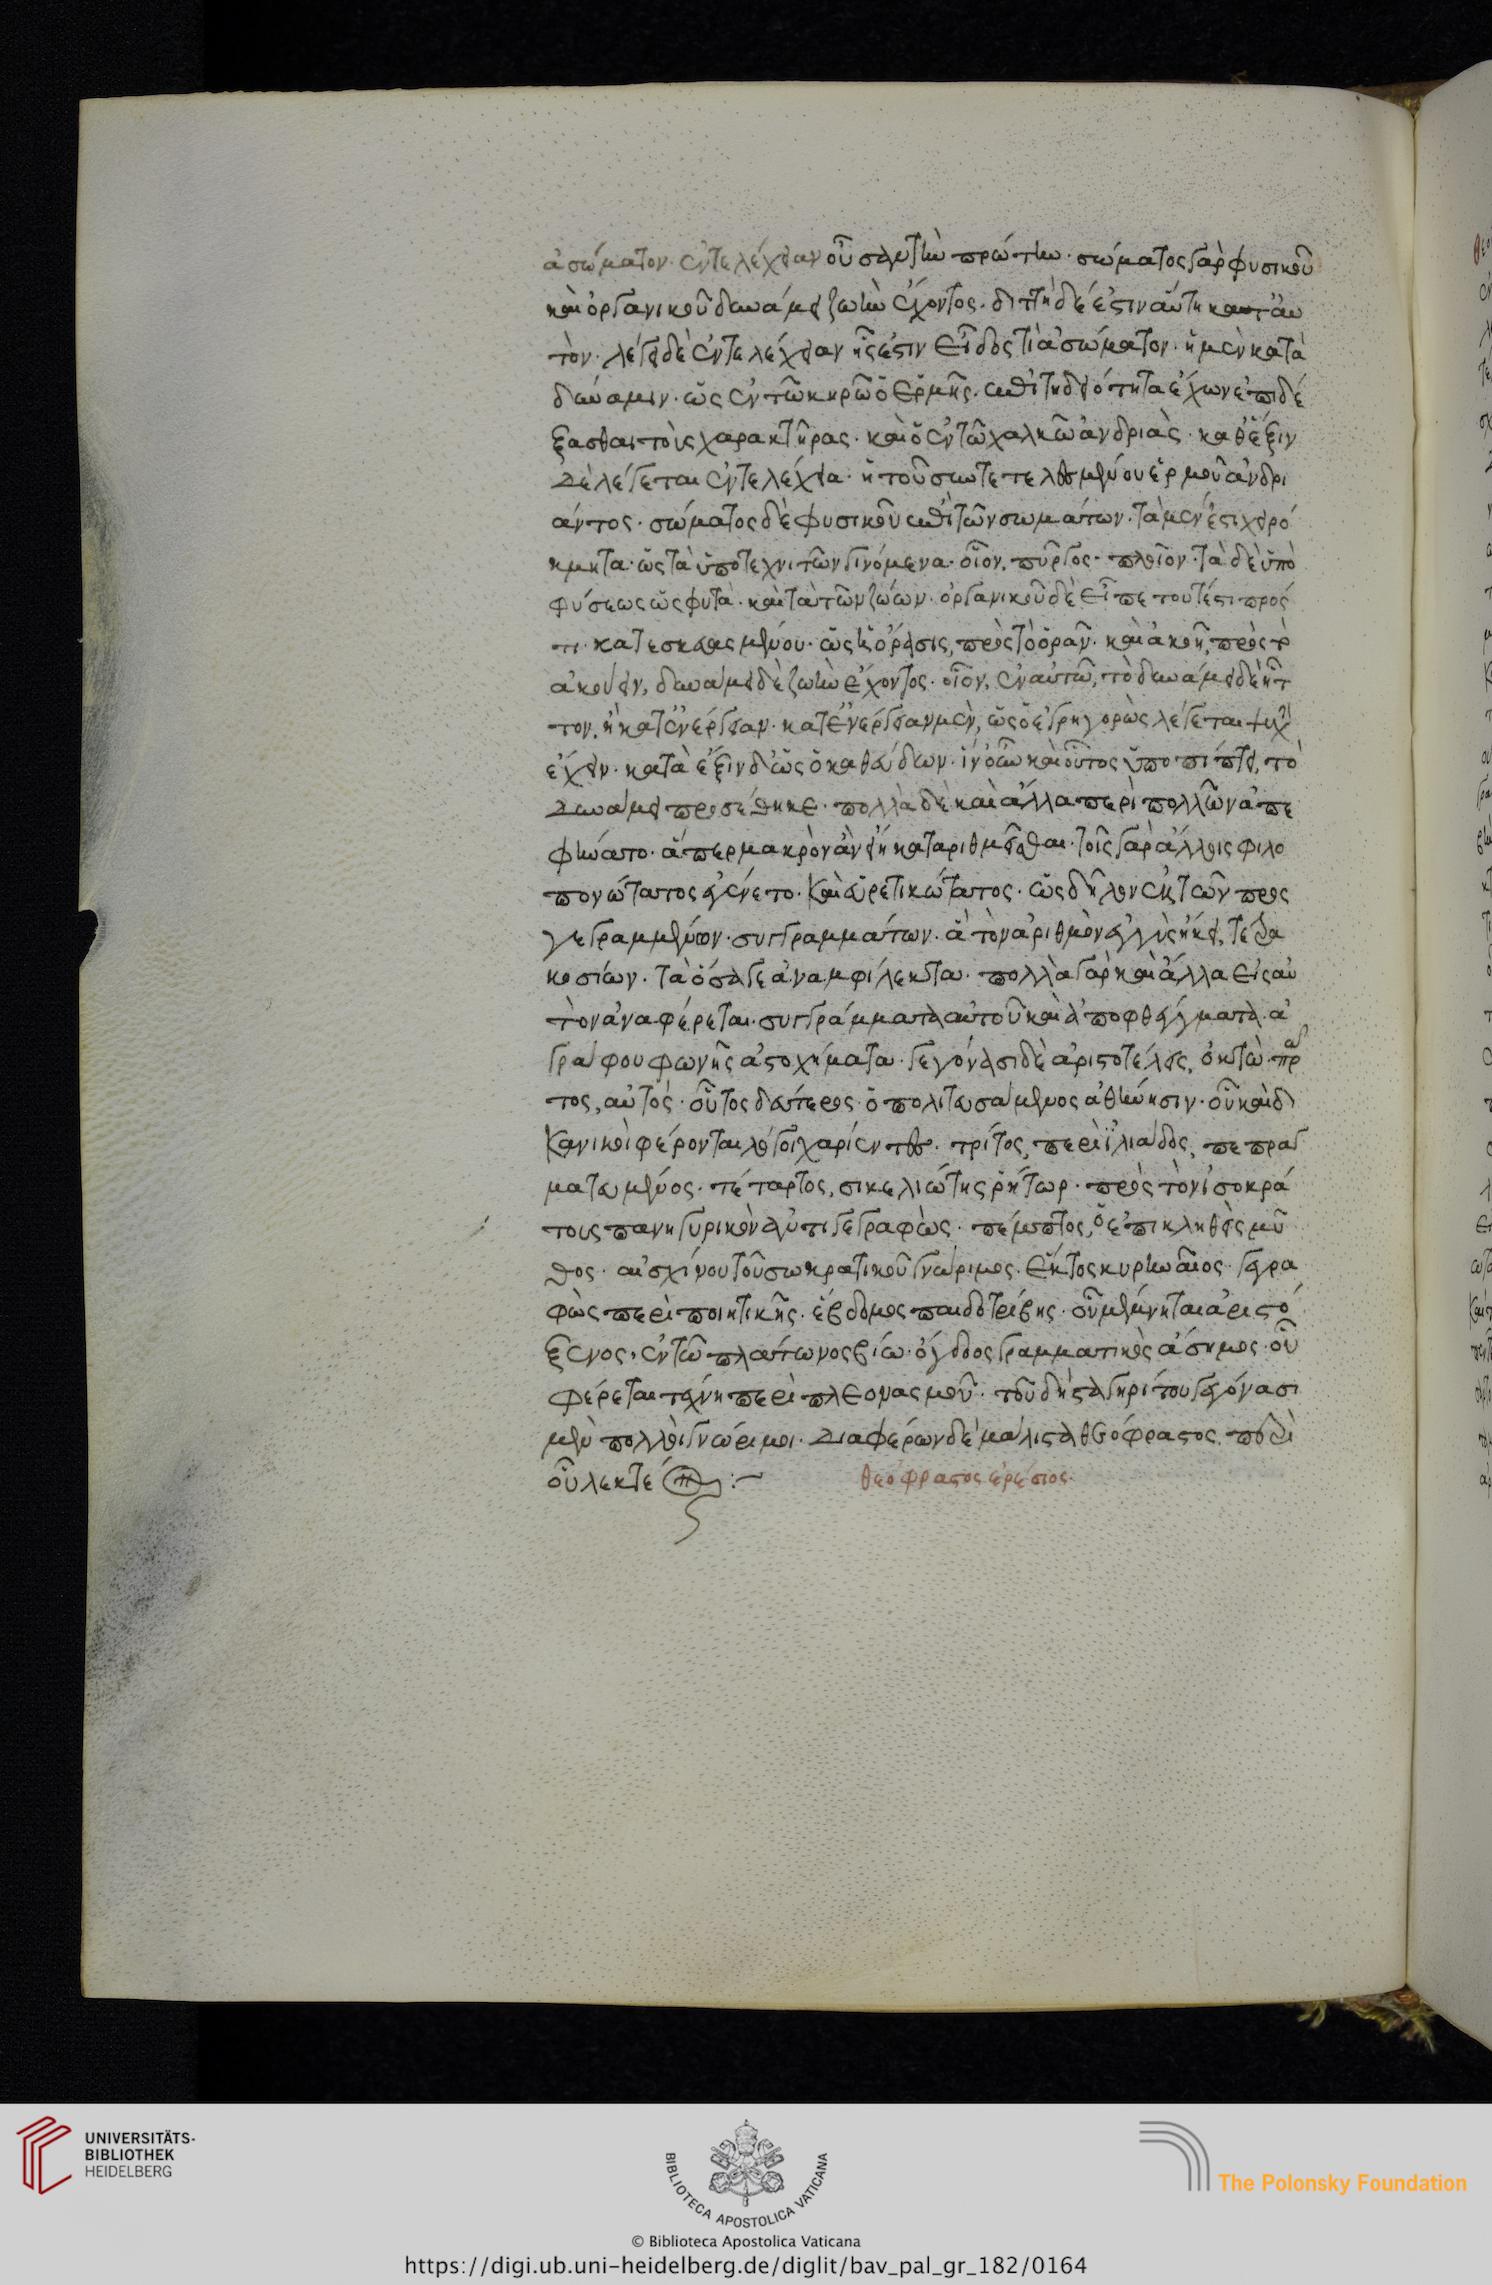 ἀσώματον· ἐντελέχειαν οὖσαν τὴν πρώτην· σώματος γὰρ φυσικοῦ
καὶ ὀργανικοῦ δυνάμει ζωὴν ἔχοντος· διττὴ δέ ἐστιν αὕτη κατ' αὐ
τὸν· λέγει δὲ ἐντελέχειαν ἧς ἐστιν εἶδός τι ἀσώματον· ἡ μὲν κατὰ
δύναμιν· ὡς ἐν τῶ κηρῶ ὁ ἑρμῆς· ἐπιτηδειότητα ἔχων ἐπιδέ
ξασθαι τοὺς χαρακτῆρας· καὶ ὁ ἐν τῶ χαλκῶ ἀνδριὰς· καθ' ἕξιν
δὲ λέγεται ἐντελέχεια· ἡ τοῦ συντετελεσμένου ἑρμοῦ ἀνδρι
άντος· σώματος δὲ φυσικοῦ ἐπὶ τῶν σωμάτων· τὰ μέν ἐστι χειρό
κμητα· ὡς τὰ ὑπὸ τεχνιτῶν γινόμενα· οἷον, πύργος· πλοῖον· τὰ δὲ ὑπὸ
φύσεως ὡς φυτὰ· καὶ τὰ τῶν ζώων· ὀργανικοῦ δὲ εἶπε τουτέστι πρός
τι κατεσκευασμένου· ὡς ἡ ὅρασις, πρὸς τὸ ὁρᾶν· καὶ ἀκοὴ, πρὸς τὸ
ἀκούειν, δυνάμει δὲ ζωὴν ἔχοντος· οἷον, ἐν αὐτῶ, τὸ δυνάμει δὲ ἧτ
τον, ἢ κατ' ἐνέργειαν· κατ' ἐνέργειαν μὲν, ὡς ὁ ἐγρηγορὼς λέγεται ψυχὴν
ἔχειν· κατὰ ἕξιν δ' ὡς ὁ καθεύδων· ἵν' οὖν καὶ οὗτος ὑποπίπτει, τὸ
δυνάμει προσέθηκε· πολλὰ δὲ καὶ ἄλλα περὶ πολλῶν ἀπε
φήνατο· ἅπερ μακρὸν ἂν εἴη καταριθμεῖσθαι· τοῖς γὰρ ἄλλοις φιλο
πονώτατος ἐγένετο· καὶ εὑρετικώτατος· ὡς δῆλον ἐκ τῶν προς
γεγραμμένων συγγραμμάτων· ἃ τὸν ἀριθμὸν ἐγγὺς ἥκει, τετρα
κοσίων· τὰ ὅσα γε ἀναμφίλεκτα· πολλὰ γὰρ καὶ ἄλλα εἰς αὐ
τὸν ἀναφέρεται συγγράμματα αὐτοῦ καὶ ἀποφθέγματα· ἀ
γράφου φωνῆς ἀστοχήματα· γεγόνασι δὲ ἀριστοτέλεις, ὀκτὼ· πρῶ
τος, αὐτός· οὗτος δεύτερος ὁ πολιτευσάμενος ἀθήνησιν· οὗ καὶ δι
κανικοὶ φέρονται λόγοι χαρίεντες· τρίτος, περὶ ἰλιάδος, πεπραγ
ματευμένος· τέταρτος, σικελιώτης ῥήτωρ· πρὸς τὸν ἰσοκρά
τους πανηγυρικὸν ἀντιγεγραφὼς· πέμπτος, ὁ ἐπικληθεὶς μῦ
θος· αἰσχίνου τοῦ σωκρατικοῦ γνώριμος· ἕκτος κυρηναῖος· γεγρα
φὼς περὶ ποιητικῆς· ἕβδομος παιδοτρίβης· οὗ μέμνηται ἀριστό
ξενος, ἐν τῶ πλάτωνος βίω· ὄγδοος γραμματικὸς ἄσημος· οὗ
φέρεται τέχνη περὶ πλεονασμοῦ· τοῦ δὴ σταγηρίτου γεγόνασι
μὲν πολλοὶ γνώριμοι· διαφέρων δὲ μάλιστα θεόφραστος, περὶ
οὗ λεκτέον:~ θεόφραστος ἐρέσιος
UNIVERSITÄTS-
BIBLIOTHEK
HEIDELBERG
BIBLIOTECA APOSTOLICA VATICANA
The Polonsky Foundation
© Biblioteca Apostolica Vaticana
https://digi.ub.uni-heidelberg.de/diglit/bav_pal_gr_182/0164